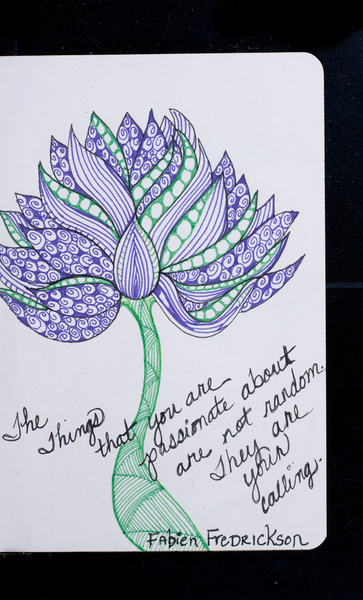 The Things that you are
passionate about
are not random.
They are
your
calling.
Fabien Fredrickson